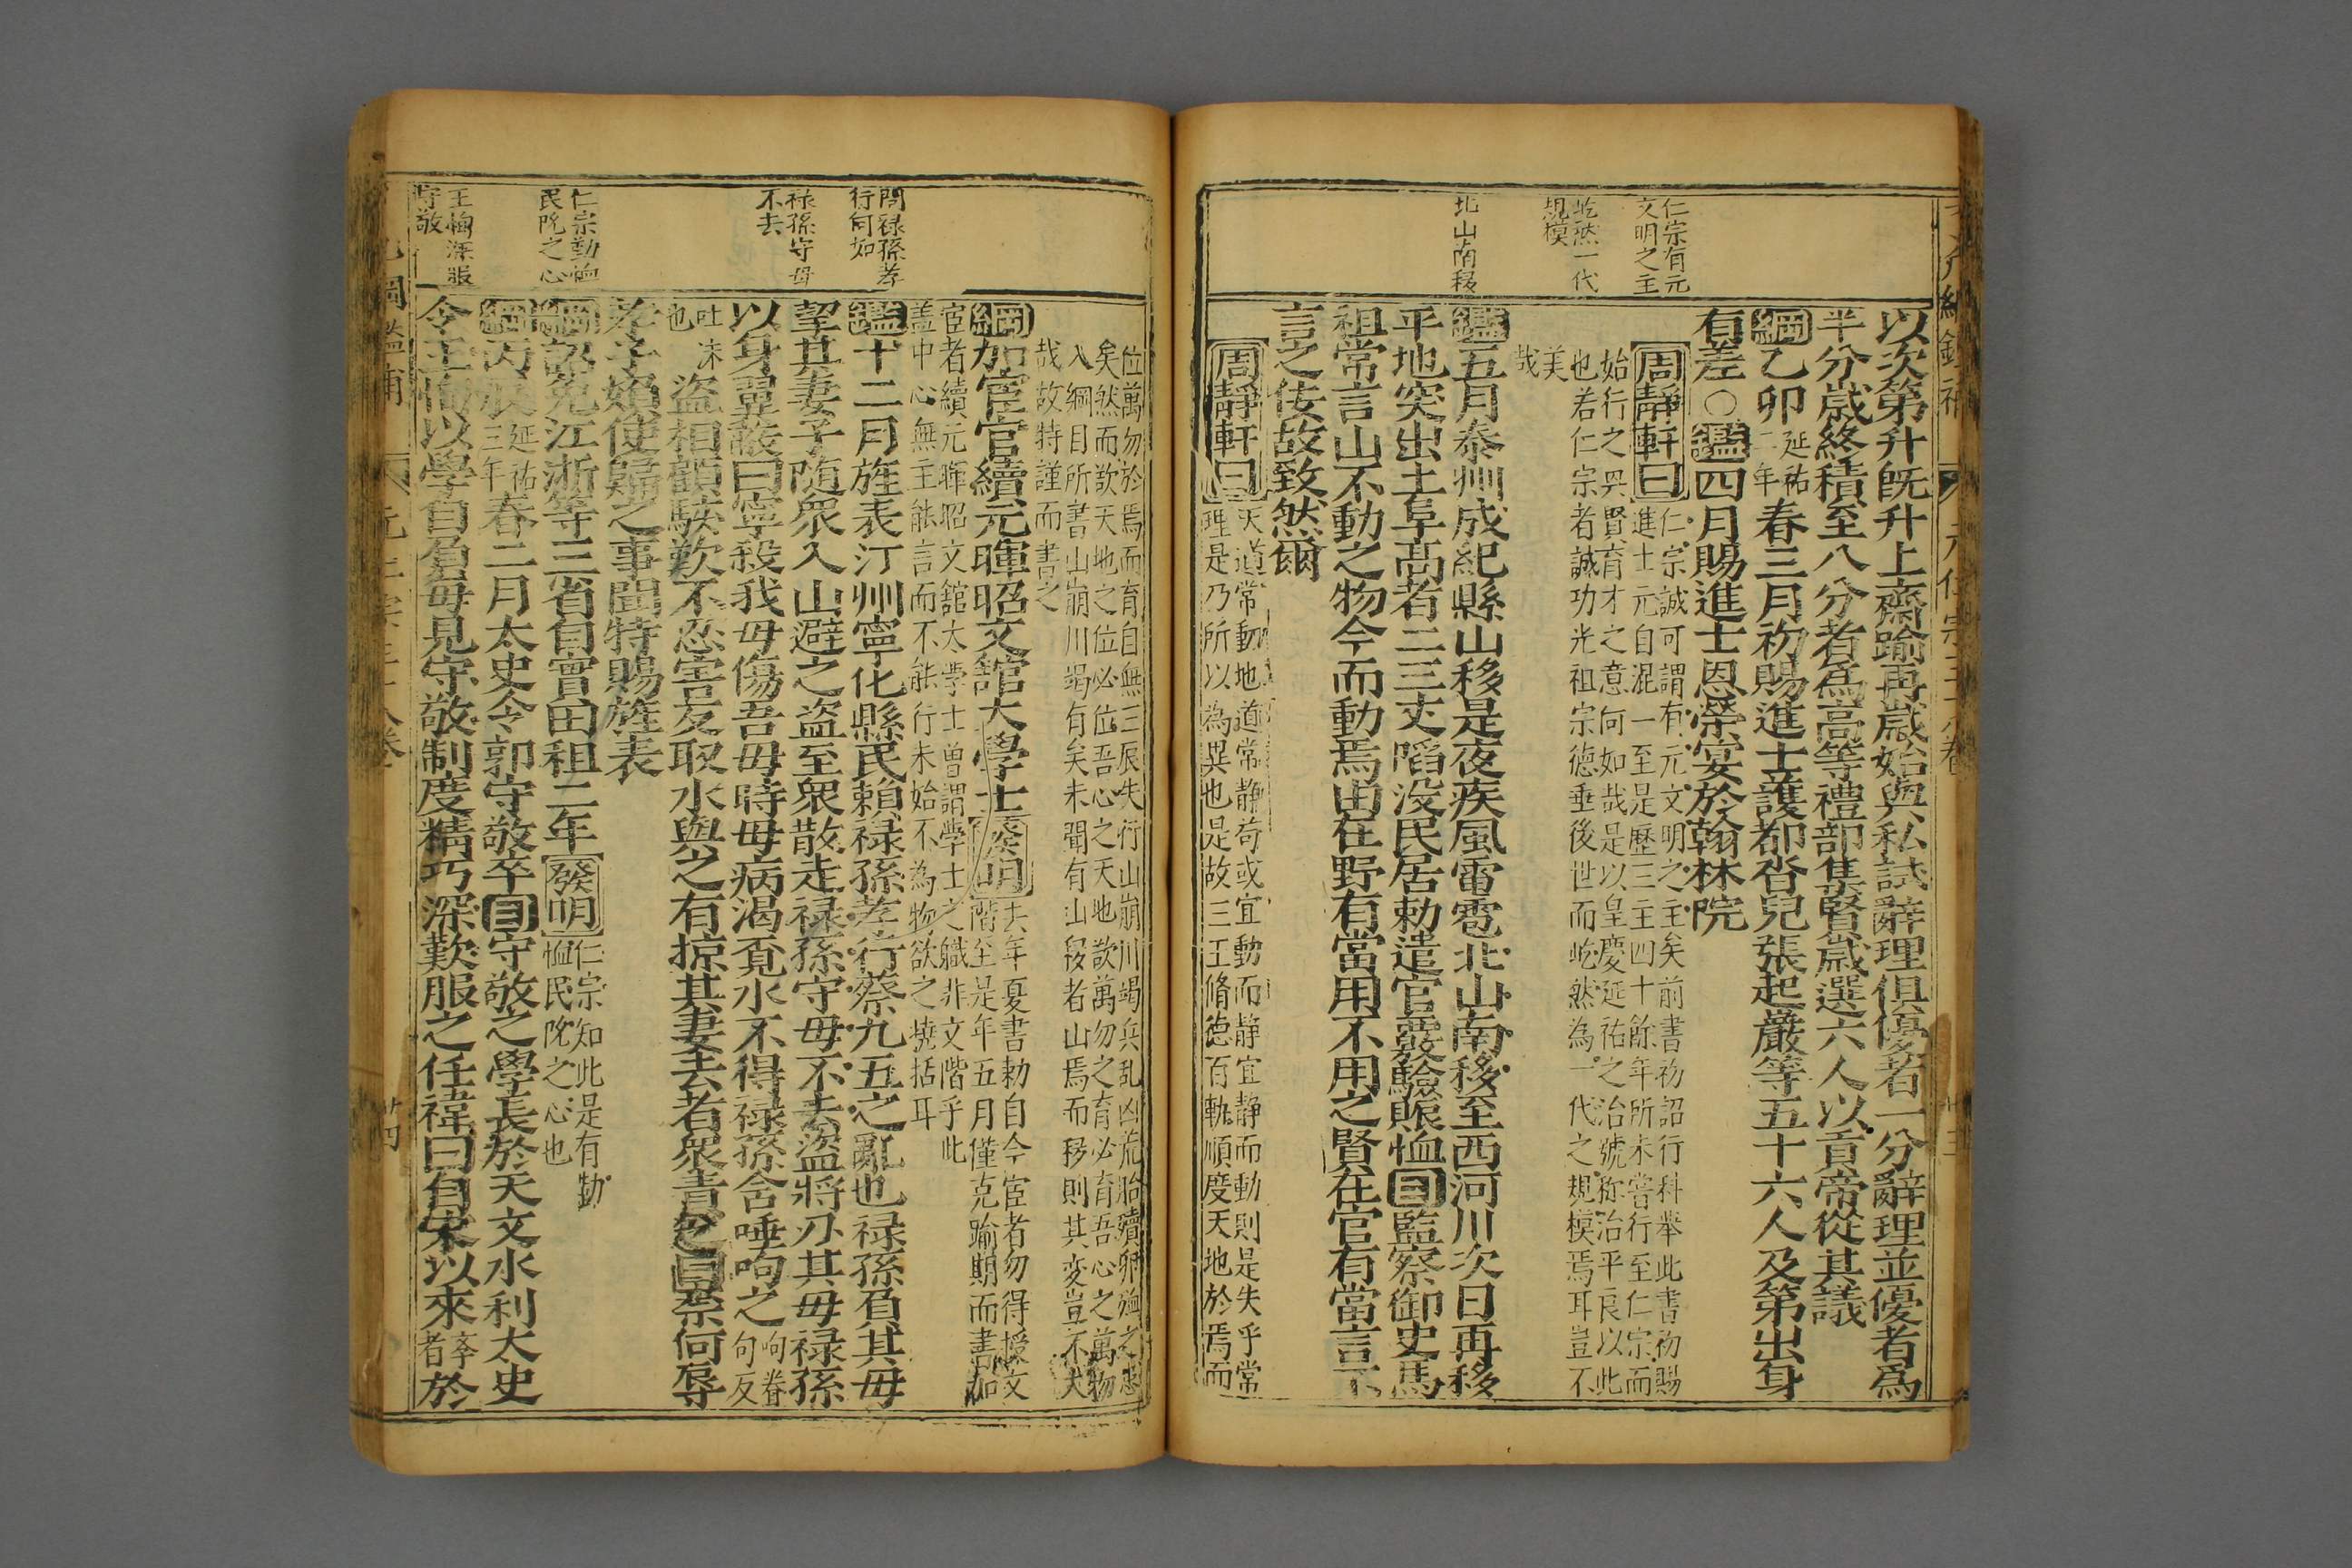 仁宗有元
文明之主
屹然一代
規模
北山南移
以次第升旣升上齋踰再歲始與私試辭理俱優者一分辭理並優者爲
半分歲終積至八分者爲高等禮部集賢歲選六人以貢帝從其議
綱乙卯延祐二年春三月初賜進士護都沓兒張起巖等五十六人及第出身
有差○鑑四月賜進士恩榮宴於翰林院
周靜軒曰仁宗誠可謂有元文明之主矣前書初詔行科舉此書初賜
進士元自混一至是歷三主四十餘年所未嘗行至仁宗而
始行之其賢育才之意何如哉是以皇慶延祐之治號称治平良以此
也若仁宗者誠功光祖宗德垂後世而屹然為一代之規模焉耳豈不
美
哉
鑑五月泰州成紀縣山移是夜疾風電雹北山南移至西河川次日再移
平地突出土阜高者二三丈陷没民居勅遣官覈驗賑恤目監察御史馬
祖常言山不動之物今而動焉由在野有當用不用之賢在官有當言不
言之佞故致然爾
周靜軒曰天道常動地道常静苟或宜動而静宜静而動則是失乎常
理是乃所以為異也是故三王脩德百軌順度天地於焉而
位萬勿於焉而育自無三辰失行山崩川竭兵乱凶荒胎殰卵殈之患
矣然而欤天地之位必位吾心之天地欤萬勿之育必育吾心之萬物
入綱目所書山崩川竭有矣未聞有山移者山焉而移則其変豈不大
哉故特謹而書之
綱加宦官續元暉昭文舘大學士發明去年夏書勅自今宦者勿得授文
階至是年五月僅克踰期而書加
宦者續元暉昭文舘大學士曾謂學士之職非文階乎此
盖中心無主能言而不能行未始不為物欲之撓括耳
鑑十二月旌表汀州寧化縣民賴禄孫孝行蔡九五之亂也禄孫負其母
挈其妻子随衆入山避之盗至衆散走禄孫守母不去盗將刃其母禄孫
以身翼蔽曰寧殺我毋傷吾母時母病渴覔水不得禄孫含唾呴之呴眷句反
吐沫也盜相顧駭歎不忍害反取水與之有掠其妻去者衆責之曰柰何辱
孝子婦使歸之事聞特賜旌表
綱詔免江浙等三省自實田租二年發明仁宗知此是有勤
恤民阨之心也
綱丙辰延祐三年春二月太史令郭守敬卒目守敬之學長於天文水利太史
令王恂以學自負每見守敬制度精巧深歎服之任禕曰自宋以來卒者於
問禄孫孝
行何如
禄孫守母
不去
仁宗勤恤
民阨之心
王恂深服
守敬